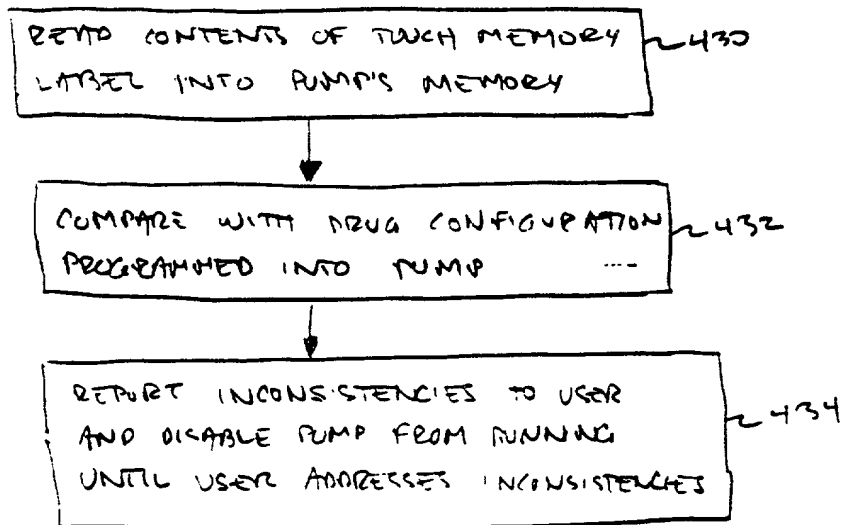 READ CONTENTS OF TOUCH MEMORY
LABEL INTO PUMP'S MEMORY
430
COMPARE WITH DRUG CONFIGURATION
PROGRAMMED INTO PUMP
432
REPORT INCONSISTENCIES TO USER
AND DISABLE PUMP FROM RUNNING
UNTIL USER ADDRESSES INCONSISTENCIES
434